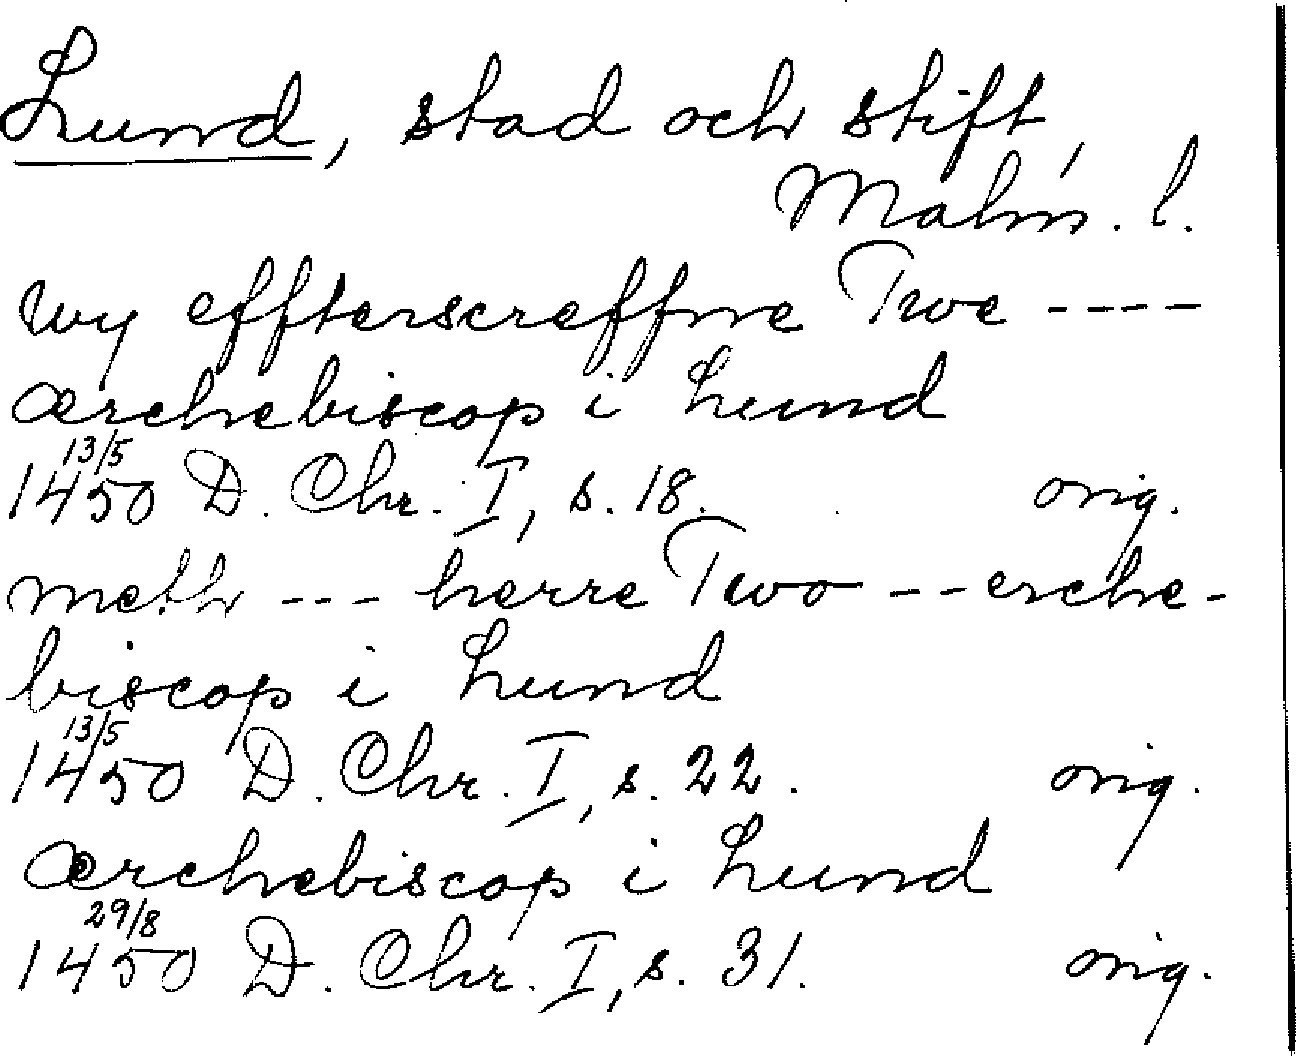 Lund, stad och stift,
Malm. l.
Wy effterscreffne Twe ----
ærchebiscop i Lund
13/5
1450 D. Chr. I, s. 18. orig.
meth --- herre Two -- erche-
biscop i Lund
13/5
1450 D. Chr. I, s. 22. orig.
ærchebiscop i Lund
29/8
1450 D. Chr. I, s. 31. orig.